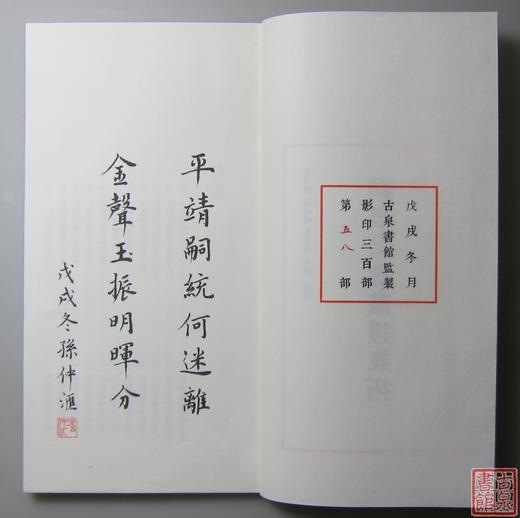 戊戌冬月
古泉書館監製
影印三百部
第五八部
平靖嗣統何迷離
金聲玉振明暉分
戊戌冬孫仲滙
尚泉書館